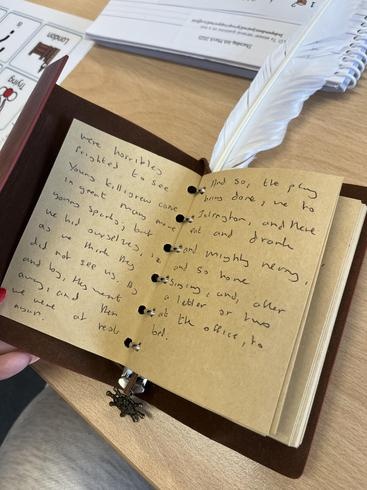 were horribley
frighted to see
Young killigrew come
in great many more
young sparks; but
we hid ourselves,
as we think they
did not see us. By
and by, they went
away, and then
we were at rest
again.
And so, the play
being done, we to
Islington, and there
eat and drank
and mighty merry,
and so home
singing, and, after
a letter or two
at the office, to
bed.
London
Trying
Thursday 6th March 2025